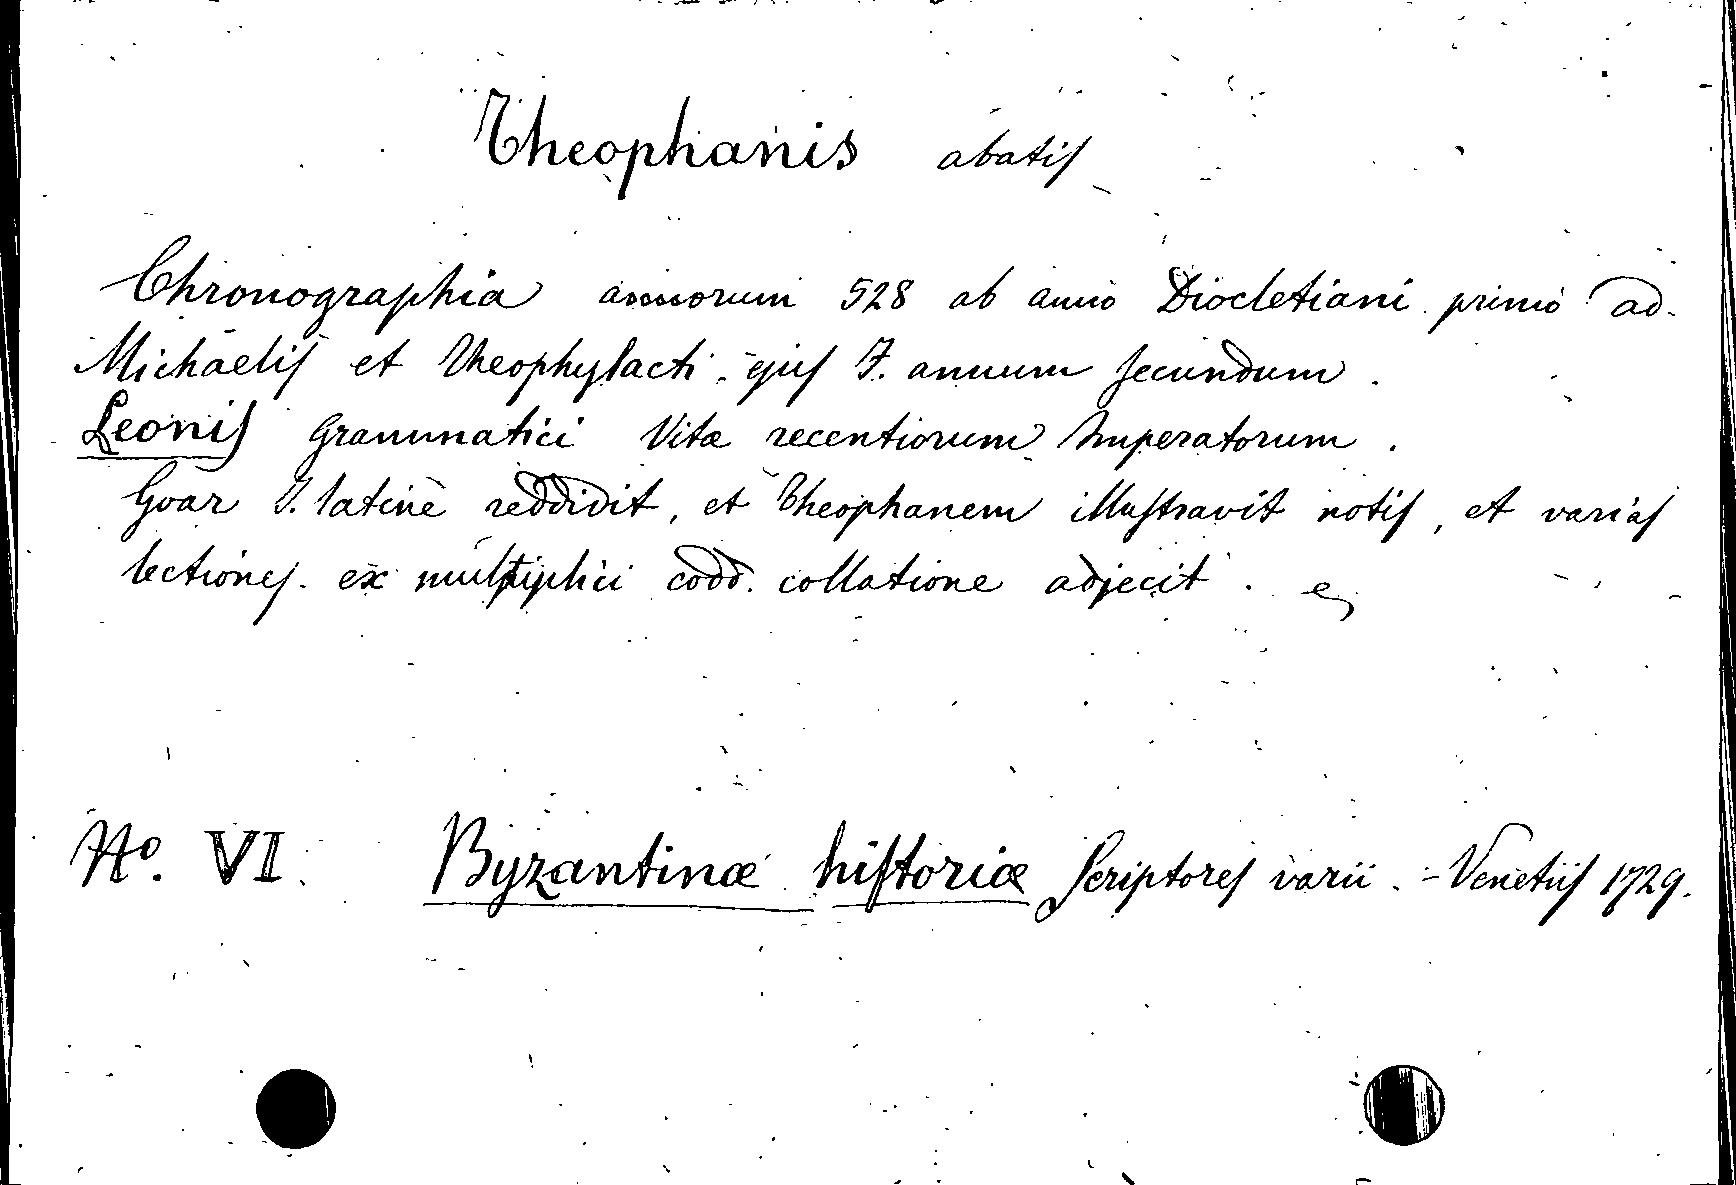 Theophanis abatis
Chronographia annorum 528 ab anno Diocletiani primo ad
Michaelis et Theophylacti ejus F. annum secundum.
Leonis Grammatici Vitæ recentiorum Imperatorum.
Goar J. latine reddidit, et Theophanem illustravit notis, et varias
lectiones ex multiplici codd. collatione adjecit.
No. VI. Byzantinæ historiæ Scriptores varii. - Venetiis 1729.